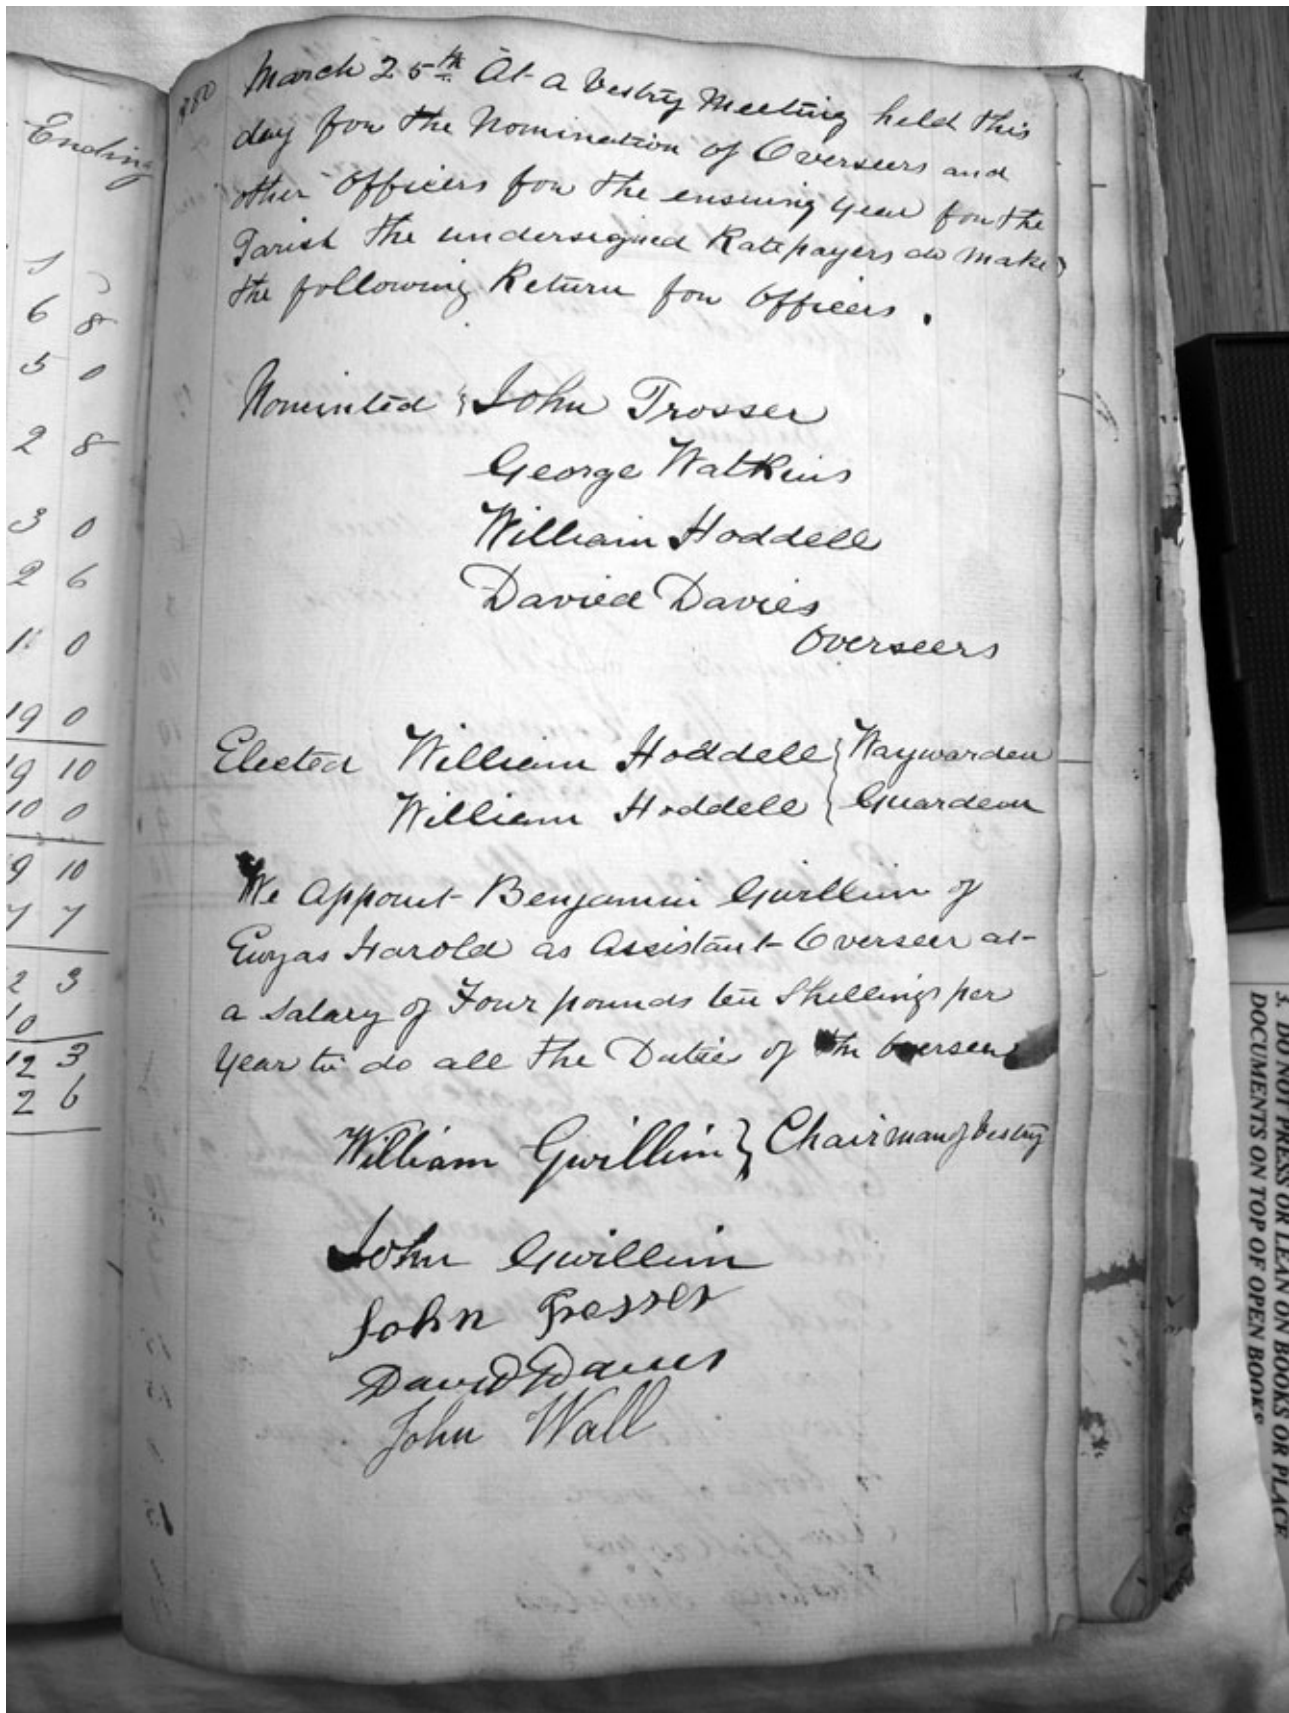 Ending
5
6 8
5 0
2 8
3 0
2 6
11 0
19 0
19 10
10 0
9 10
7 7
2 3
10
12 3
2 6
March 25th At a Vestry Meeting held this
day for the Nomination of Overseers and
other Officers for the ensuing year for the
Parish the undersigned Ratepayers do make
the following Return for Officers.
Nominted } John Trosser
George Watkins
William Hoddell
Davied Davies
Overseers
Elected William Hoddell } Waywarden
William Hoddell { Guardean
We Appount Benjamin Gwillim of
Ewyas Harold as Assistant Overseer at
a Salary of Four pounds ten Shellings per
Year to do all the Dutie of the Overseers
William Gwillim } Chairman of Vestry
John Gwillim
John Trosser
David Davies
John Wall
3. DO NOT PRESS OR LEAN ON BOOKS OR PLACE
DOCUMENTS ON TOP OF OPEN BOOKS